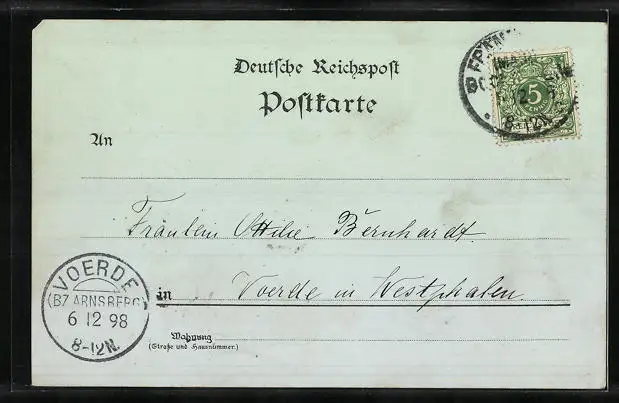 Deutsche Reichspost
Postkarte
5
8-12N.
An
Fräulein Ottilie Bernhardt.
in Voerde in Westphalen.
Wohnung
(Straße und Hausnummer.)
VOERDE
(BZ. ARNSBERG)
6 12 98
8-12N.